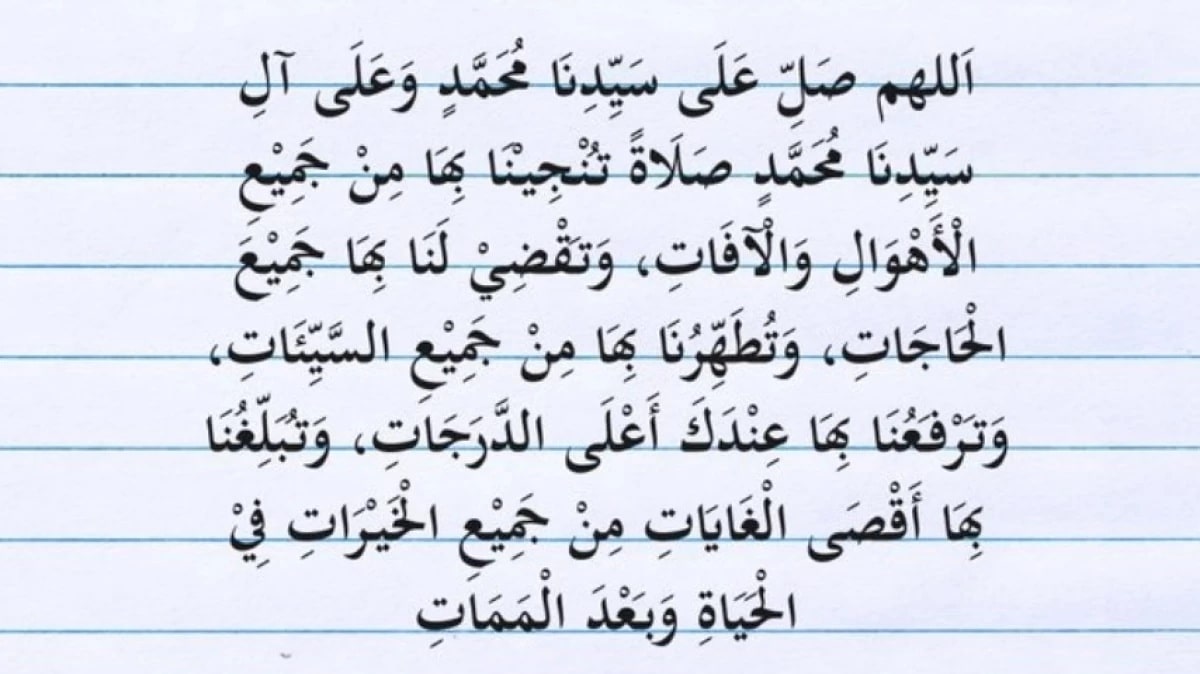 اَللهم صَلِّ عَلَى سَيِّدِنَا مُحَمَّدٍ وَعَلَى آلِ
سَيِّدِنَا مُحَمَّدٍ صَلَاةً تُنْجِيْنَا بِهَا مِنْ جَمِيْعِ
الْأَهْوَالِ وَالْآفَاتِ، وَتَقْضِيْ لَنَا بِهَا جَمِيْعَ
الْحَاجَاتِ، وَتُطَهِّرُنَا بِهَا مِنْ جَمِيْعِ السَّيِّئَاتِ،
وَتَرْفَعُنَا بِهَا عِنْدَكَ أَعْلَى الدَّرَجَاتِ، وَتُبَلِّغُنَا
بِهَا أَقْصَى الْغَايَاتِ مِنْ جَمِيْعِ الْخَيْرَاتِ فِيْ
الْحَيَاةِ وَبَعْدَ الْمَمَاتِ